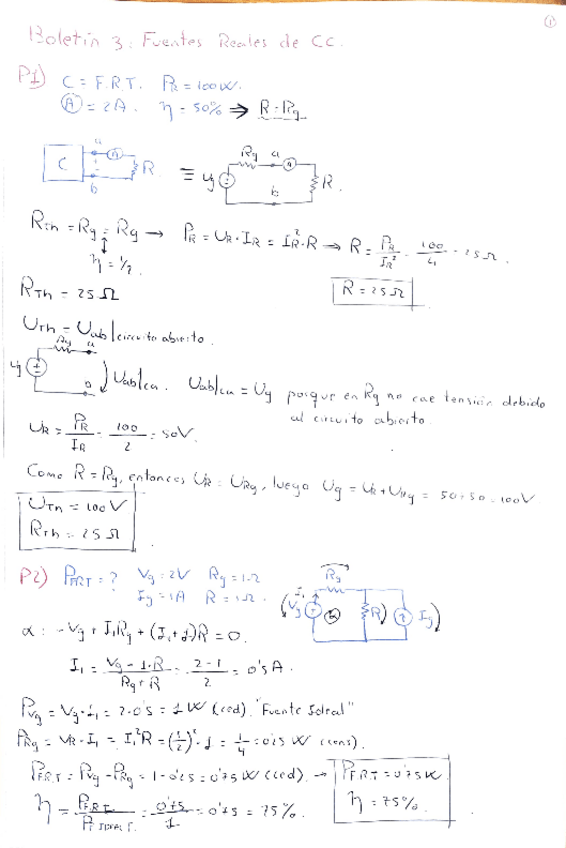 ①
Boletín 3: Fuentes Reales de CC.
P1) C = F.R.T. P_R = 100W.
Ⓐ = 2A. η = 50% ⇒ R = Rg
C a A R b ≡ Ug Rg a A b R.
R_Th = Rg = Rg → P_R = U_R · I_R = I_R² · R → R = P_R / I_R² = 100 / 4 = 25 Ω.
η = 1/2.
R_Th = 25 Ω
R = 25 Ω
U_Th = Uab | circuito abierto.
Ug Rg a b Uab|ca. Uab|ca = Ug porque en Rg no cae tensión debido
al circuito abierto.
U_R = P_R / I_R = 100 / 2 = 50V.
Como R = Rg, entonces U_R = U_Rg, luego Ug = U_R + U_Rg = 50 + 50 = 100V
U_Th = 100V
R_Th = 25 Ω
P2) P_FRT = ? Vg = 2V Rg = 1Ω
Ig = 1A R = 1Ω.
Rg I₁ Vg α R Ig
α: -Vg + I₁Rg + (I₁+1)R = 0.
I₁ = Vg - 1·R / Rg + R = 2-1 / 2 = 0'5 A.
P_Vg = Vg · I₁ = 2·0'5 = 1W (ced). "Fuente Ideal"
P_Rg = V_R · I₁ = I₁²R = (1/2)² · 1 = 1/4 = 0'25 W (cons).
P_FRT = P_Vg - P_Rg = 1 - 0'25 = 0'75 W (ced). → P_FRT = 0'75W
η = P_FRT / P_F IDEAL T. = 0'75 / 1 = 0'75 = 75%.
η = 75%.